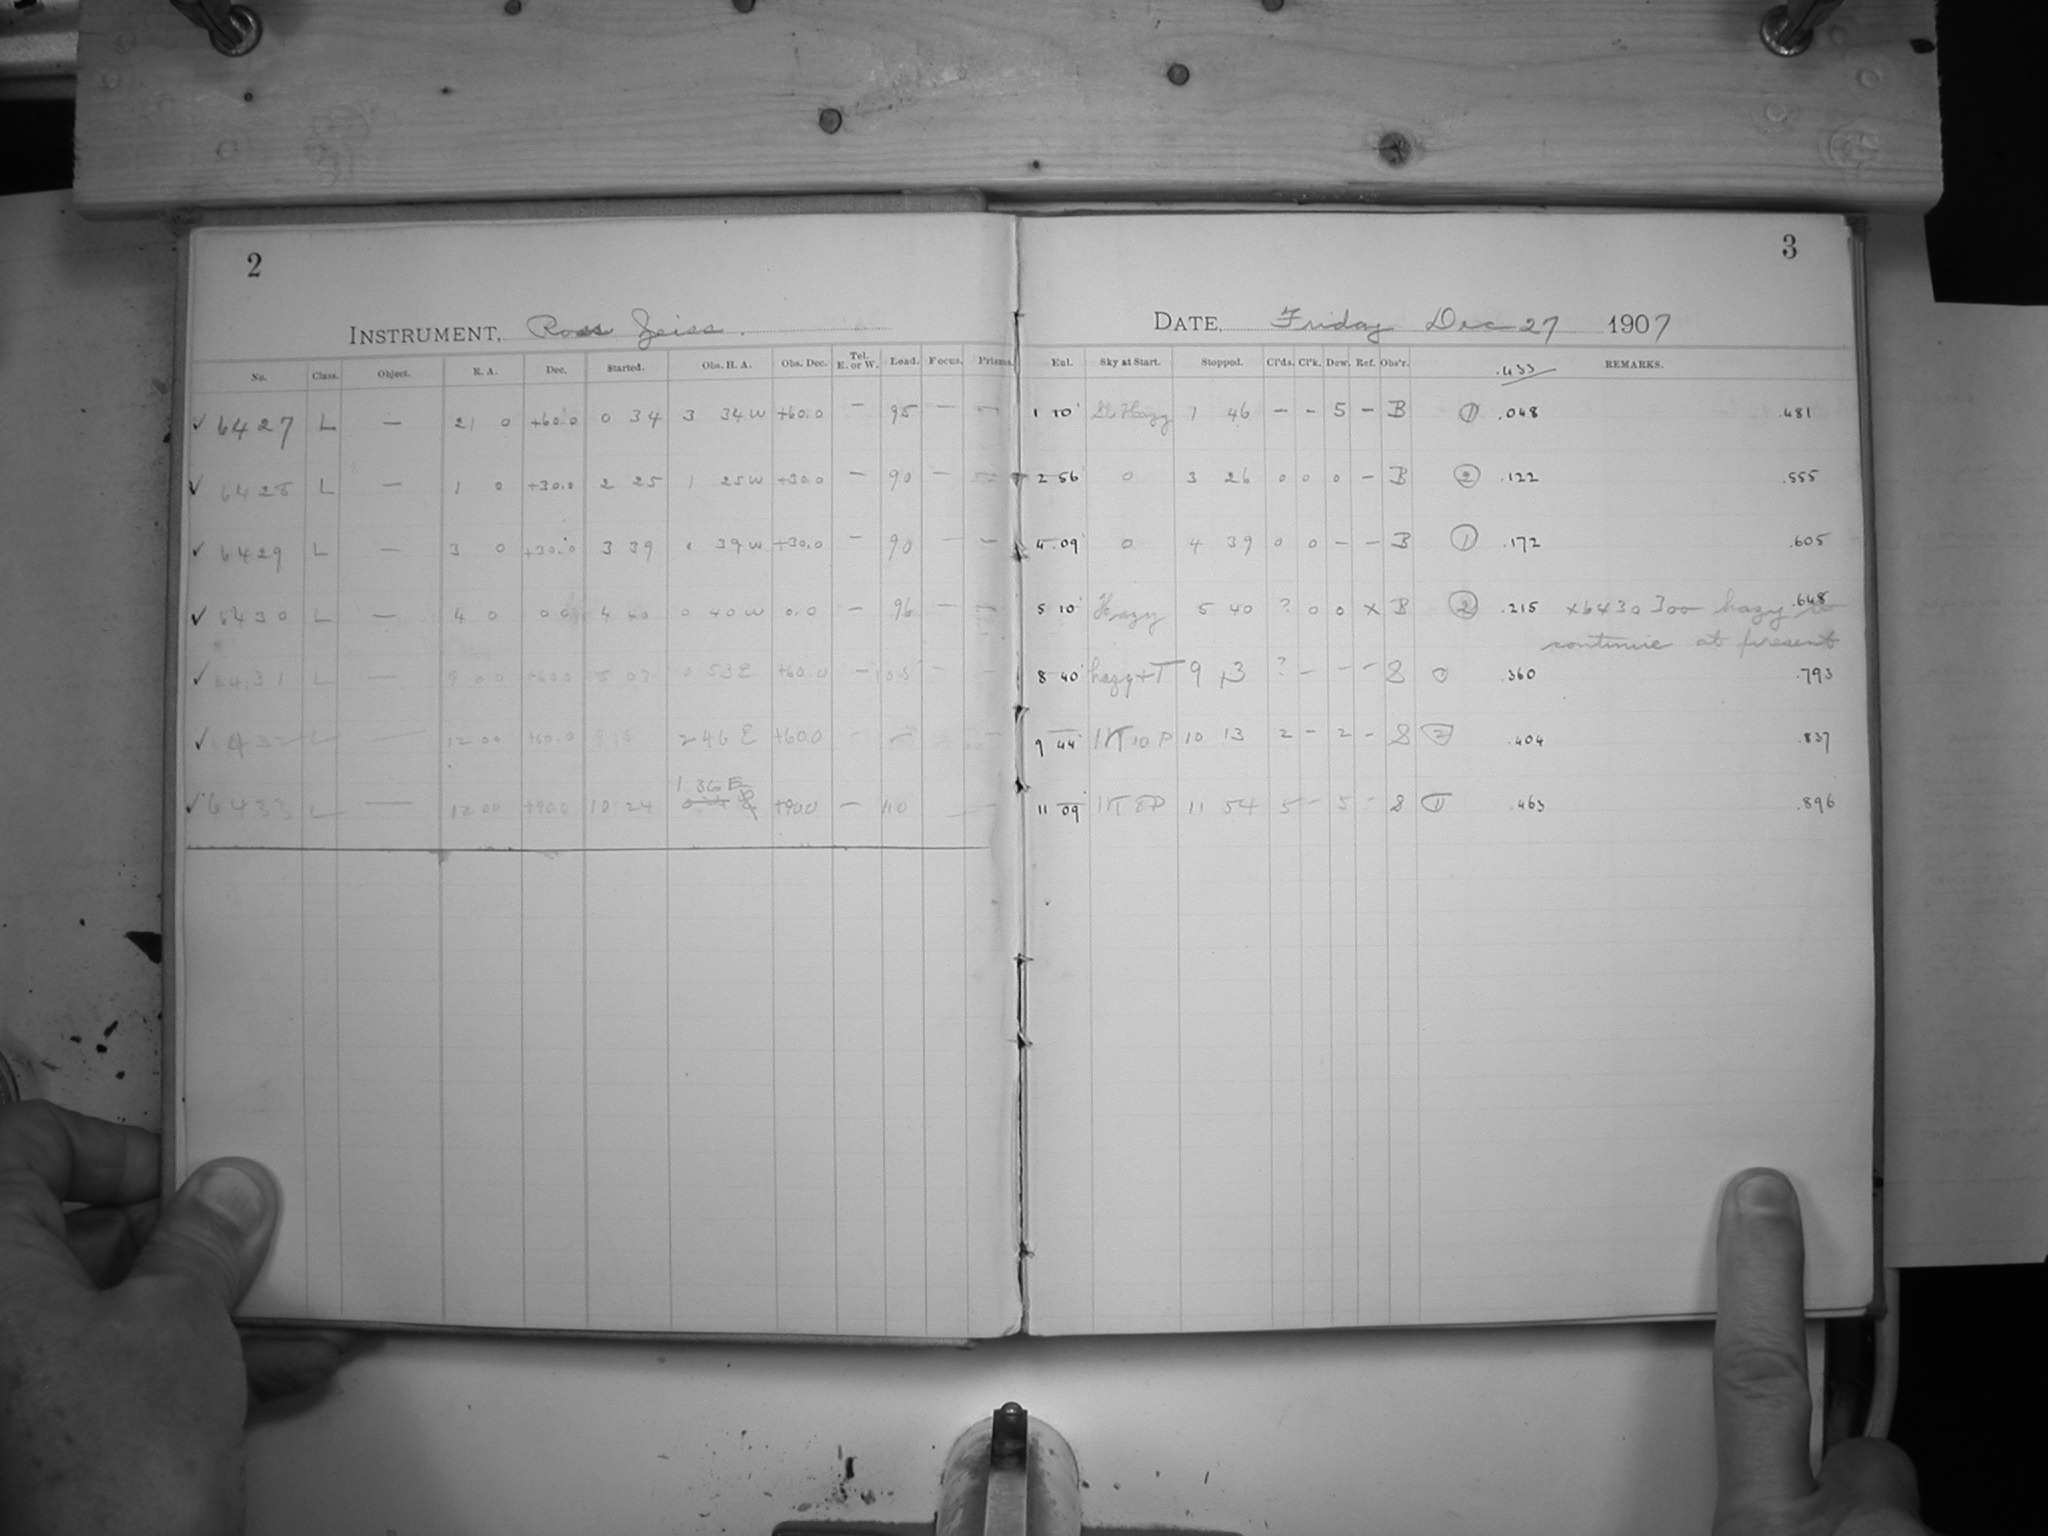 2
INSTRUMENT, Ross Zeiss.
No. Class. Object. R. A. Dec. Started. Obs. H. A. Obs. Dec. Tel. E. or W. Lead. Focus. Prisms.
✓ 6427 L — 21 0 +60.0 0 34 3 34 W +60.0 — 95 — —
✓ 6428 L — 1 0 +30.0 2 25 1 25 W +30.0 — 90 — —
✓ 6429 L — 3 0 +30.0 3 39 39 W +30.0 — 90 — —
✓ 6430 L — 4 0 0.0 4 40 0 40 W 0.0 — 96 — —
✓ 6431 L — 9 00 +60.0 0 53 E +60.0 — 105 — —
✓ 6432 L — 12 00 +60.0 2 46 E +60.0 —
1 36 E
✓ 6433 L — 12 00 +90.0 10 24 +90.0 — 110 — —
3
DATE, Friday Dec 27 1907
Exl. Sky at Start. Stopped. Cl'ds. Cl'k. Dew. Ref. Obs'r. .433 REMARKS.
1 10 Sl Hazy 1 46 — — 5 — B ① .048 .481
2 56 0 3 26 0 0 0 — B ② .122 .555
4 09 0 4 39 0 0 — — B ① .172 .605
5 10 Hazy 5 40 ? 0 0 x B ② .215 x6430 Too hazy to .648
continue at present
8 40 hazy+T 9 13 ? — — — S .360 .793
9 44 10 P 10 13 2 — 2 — S ② .404 .837
11 09 8P 11 54 5 — 5 — S ① .463 .896